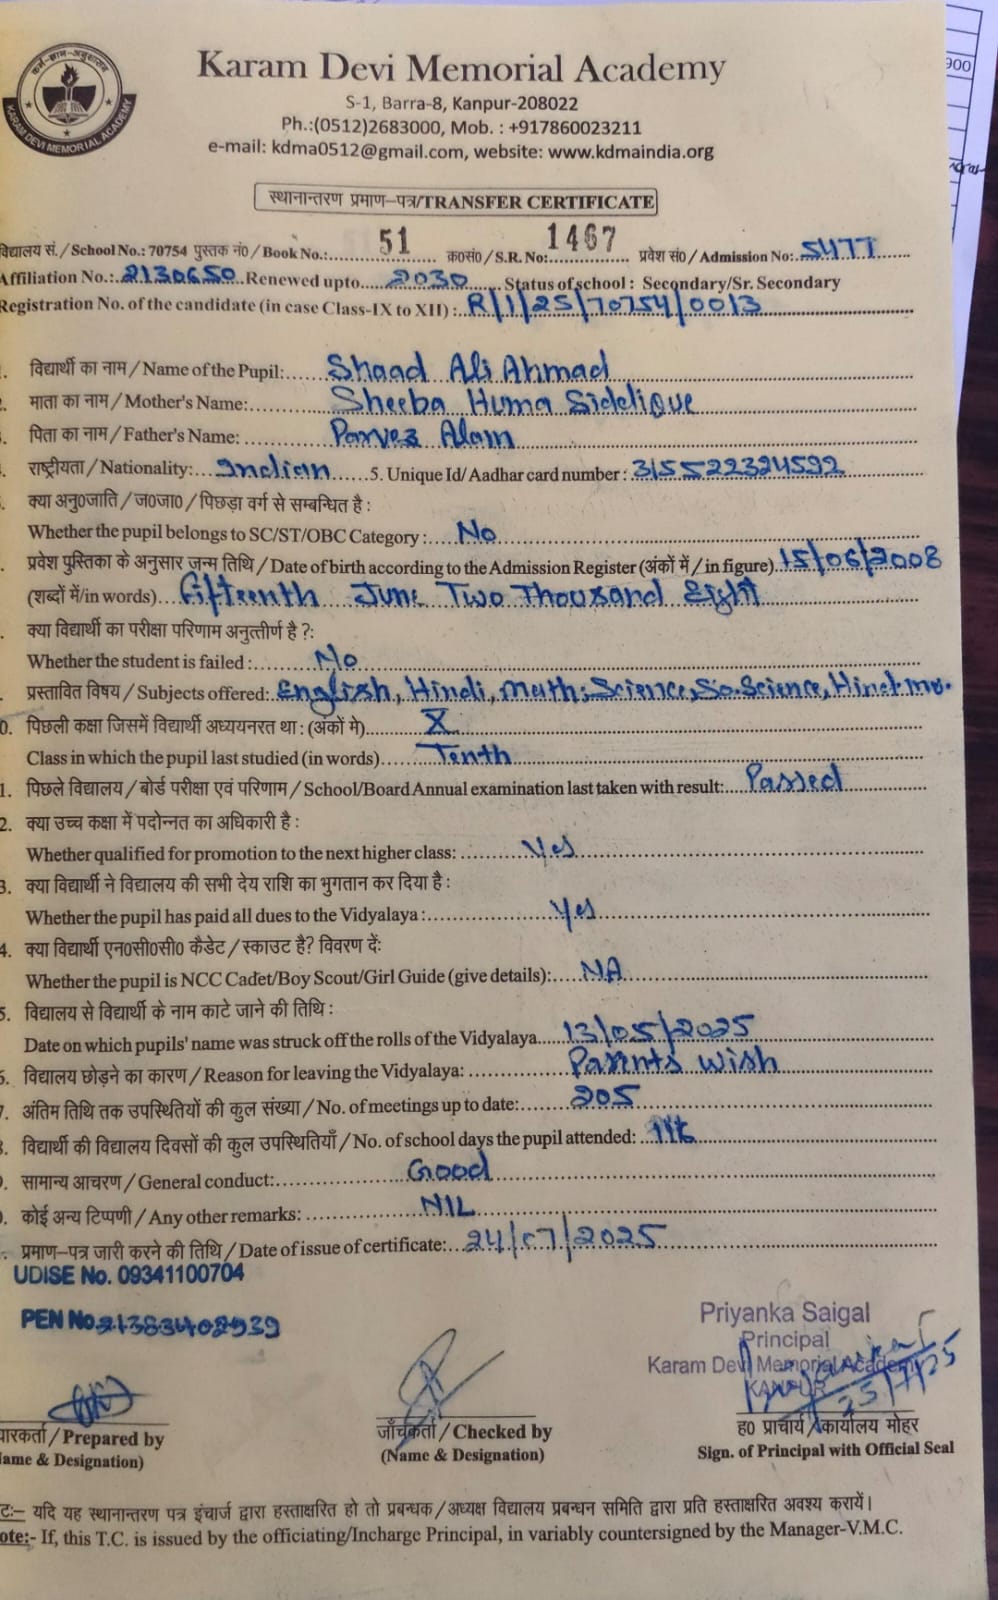 कर्म-ज्ञान-अनुशासन
KARAM DEVI MEMORIAL ACADEMY
Karam Devi Memorial Academy
S-1, Barra-8, Kanpur-208022
Ph.:(0512)2683000, Mob. : +917860023211
e-mail: kdma0512@gmail.com, website: www.kdmaindia.org
900
स्थानान्तरण प्रमाण-पत्र/TRANSFER CERTIFICATE
विद्यालय सं./School No.: 70754 पुस्तक नं0/Book No.: 51 क्र0सं0/S.R. No: 1467 प्रवेश सं0/Admission No: 5477
Affiliation No.: 2130650 Renewed upto 2030 Status of school : Secondary/Sr. Secondary
Registration No. of the candidate (in case Class-IX to XII) : R/1/25/70754/0013
. विद्यार्थी का नाम/Name of the Pupil: Shaad Ali Ahmad
. माता का नाम/Mother's Name: Sheeba Huma Siddique
. पिता का नाम/Father's Name: Parvez Alam
. राष्ट्रीयता/Nationality: Indian 5. Unique Id/Aadhar card number : 315522324592
. क्या अनु0जाति/ज0जा0/पिछड़ा वर्ग से सम्बन्धित है :
Whether the pupil belongs to SC/ST/OBC Category : No
. प्रवेश पुस्तिका के अनुसार जन्म तिथि/Date of birth according to the Admission Register (अंकों में/in figure) 15/06/2008
(शब्दों में/in words) Fifteenth June Two Thousand Eight
. क्या विद्यार्थी का परीक्षा परिणाम अनुत्तीर्ण है ?:
Whether the student is failed : No
. प्रस्तावित विषय/Subjects offered: English, Hindi, Math, Science, So.Science, Hind.mu.
0. पिछली कक्षा जिसमें विद्यार्थी अध्ययनरत था : (अंकों मे) X
Class in which the pupil last studied (in words) Tenth
1. पिछले विद्यालय/बोर्ड परीक्षा एवं परिणाम/School/Board Annual examination last taken with result: Passed
2. क्या उच्च कक्षा में पदोन्नत का अधिकारी है :
Whether qualified for promotion to the next higher class: Yes
3. क्या विद्यार्थी ने विद्यालय की सभी देय राशि का भुगतान कर दिया है :
Whether the pupil has paid all dues to the Vidyalaya : Yes
4. क्या विद्यार्थी एन0सी0सी0 कैडेट/स्काउट है? विवरण दें:
Whether the pupil is NCC Cadet/Boy Scout/Girl Guide (give details): NA
5. विद्यालय से विद्यार्थी के नाम काटे जाने की तिथि :
Date on which pupils' name was struck off the rolls of the Vidyalaya 13/05/2025
6. विद्यालय छोड़ने का कारण/Reason for leaving the Vidyalaya: Parents Wish
7. अंतिम तिथि तक उपस्थितियों की कुल संख्या/No. of meetings up to date: 205
8. विद्यार्थी की विद्यालय दिवसों की कुल उपस्थितियाँ/No. of school days the pupil attended:
9. सामान्य आचरण/General conduct: Good
0. कोई अन्य टिप्पणी/Any other remarks: NIL
. प्रमाण-पत्र जारी करने की तिथि/Date of issue of certificate: 24/07/2025
UDISE No. 09341100704
PEN No. 21383402939
Priyanka Saigal
Principal
Karam Devi Memorial Academy
KANPUR
25/7/25
ारकर्ता/Prepared by
ame & Designation)
जाँचकर्ता/Checked by
(Name & Designation)
ह0 प्राचार्य/कार्यालय मोहर
Sign. of Principal with Official Seal
टः– यदि यह स्थानान्तरण पत्र इंचार्ज द्वारा हस्ताक्षरित हो तो प्रबन्धक/अध्यक्ष विद्यालय प्रबन्धन समिति द्वारा प्रति हस्ताक्षरित अवश्य करायें।
ote:- If, this T.C. is issued by the officiating/Incharge Principal, in variably countersigned by the Manager-V.M.C.